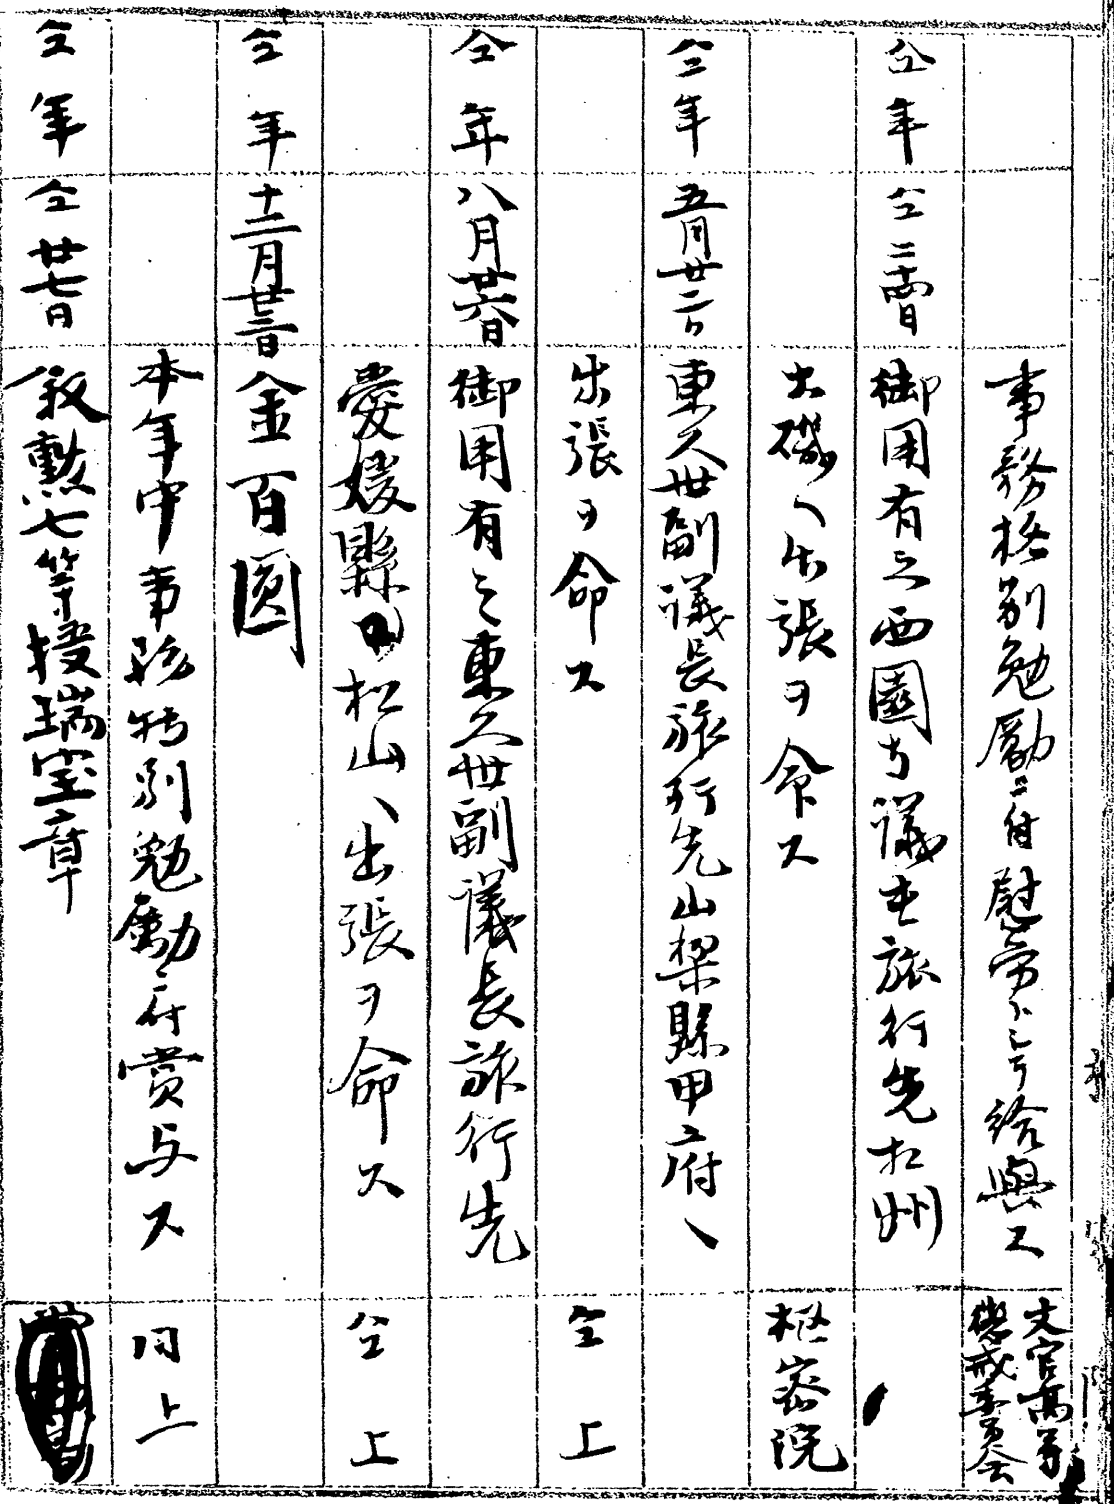 事務格別勉勵ニ付慰労トシテ給與ス 文官高等懲戒委員会
仝年 仝二十四日 御用有之西園寺議長旅行先相州
大磯ヘ出張ヲ命ス 枢密院
仝年 五月廿二日 東久世副議長旅行先山梨縣甲府ヘ
出張ヲ命ス 仝上
仝年 八月廿六日 御用有之東久世副議長旅行先
愛媛縣松山ヘ出張ヲ命ス 仝上
仝年 十二月廿三日 金百圓
本年中事務特別勉励ニ付賞与ス 同上
仝年 仝廿七日 叙勲七等授瑞宝章